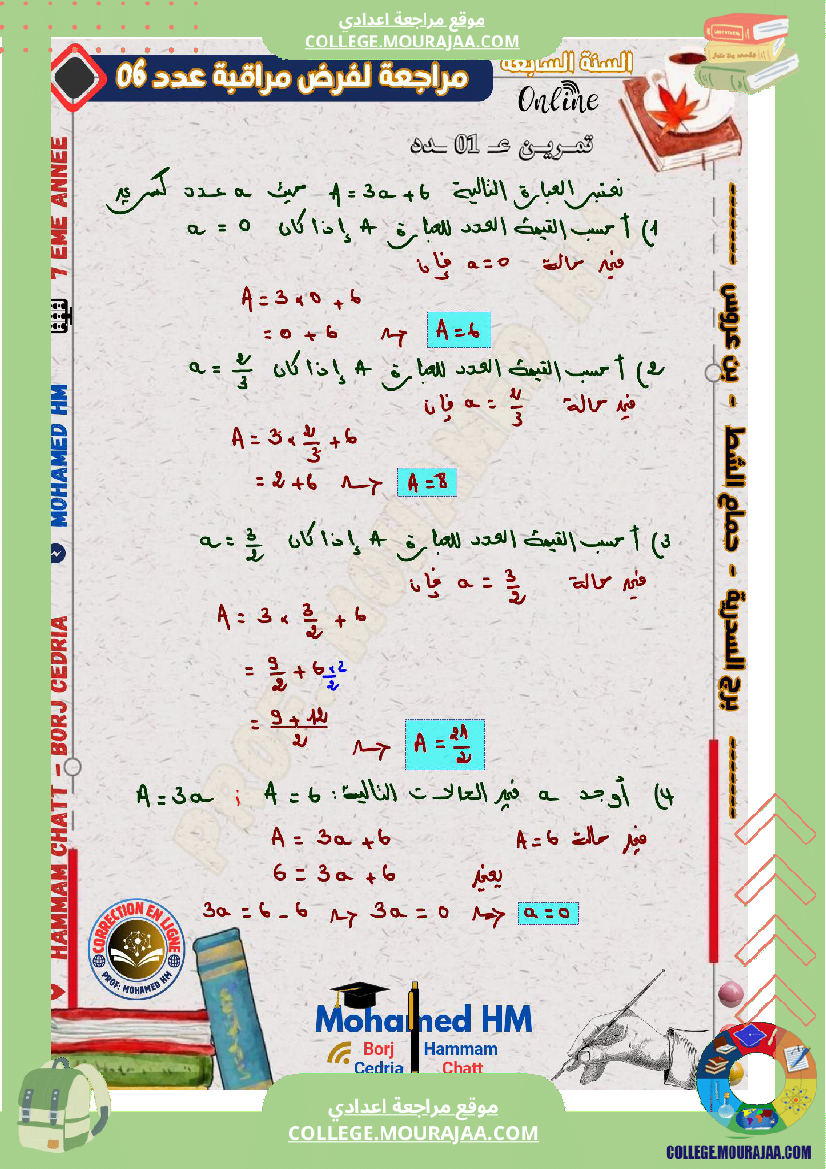 موقع مراجعة اعدادي
COLLEGE.MOURAJAA.COM
السنة السابعة
مراجعة لفرض مراقبة عدد 06
Online
تمـريـن عـ 01 ـدد
نعتبر العبارة التالية A = 3a + 6 حيث a عدد كسري
1) أحسب القيمة العدد للعبارة A إذا كان a = 0
في حالة a = 0 فإن
A = 3 × 0 + 6
= 0 + 6 ⇝ A = 6
2) أحسب القيمة العدد للعبارة A إذا كان a = 2/3
في حالة a = 2/3 فإن
A = 3 × 2/3 + 6
= 2 + 6 ⇝ A = 8
3) أحسب القيمة العدد للعبارة A إذا كان a = 3/2
في حالة a = 3/2 فإن
A = 3 × 3/2 + 6
= 9/2 + 6 ×2/2
= 9 + 12/2 ⇝ A = 21/2
4) أوجد a في الحالات التالية: A = 6 ; A = 3a
في حالة A = 6 A = 3a + 6
يعني 6 = 3a + 6
3a = 6 - 6 ⇝ 3a = 0 ⇝ a = 0
7 EME ANNEE
MOHAMED HM
HAMMAM CHATT - BORJ CEDRIA
برج السدرية - حمام الشط - بن عروس
PROF. MOHAMED HM
CORRECTION EN LIGNE
PROF: MOHAMED HM
Mohamed HM
Borj Hammam
Cedria Chatt
موقع مراجعة اعدادي
COLLEGE.MOURAJAA.COM
COLLEGE.MOURAJAA.COM